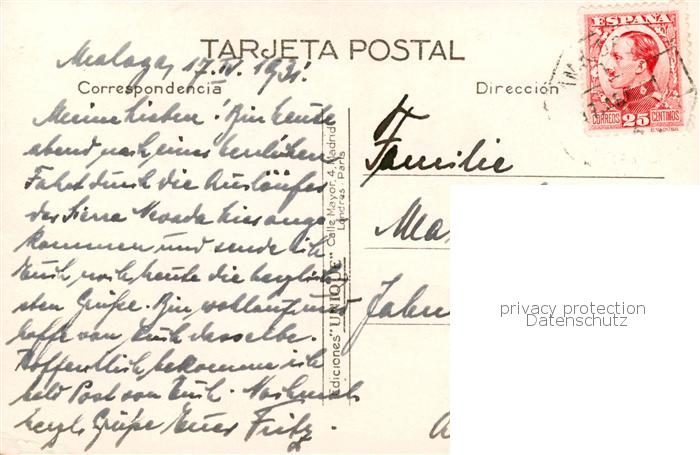 TARJETA POSTAL
Malaga, 17.IV.1931.
Correspondencia
Meine Lieben! Bin heute
abend nach einer herrlichen
Fahrt durch die Ausläufer
der Sierra Nevada hier ange
kommen und sende ich
Euch noch heute die herzlich
sten Grüße. Bin wohlauf und
hoffe von Euch dasselbe.
Hoffentlich bekomme ich
bald Post von Euch. Nochmals
herzl. Grüße Euer Fritz
Ediciones "UNIQUE" Calle Mayor, 4, Madrid
Londres - Paris
Dirección
Familie
Ma
Jahn
ESPAÑA
CORREOS 25 CENTIMOS
privacy protection
Datenschutz